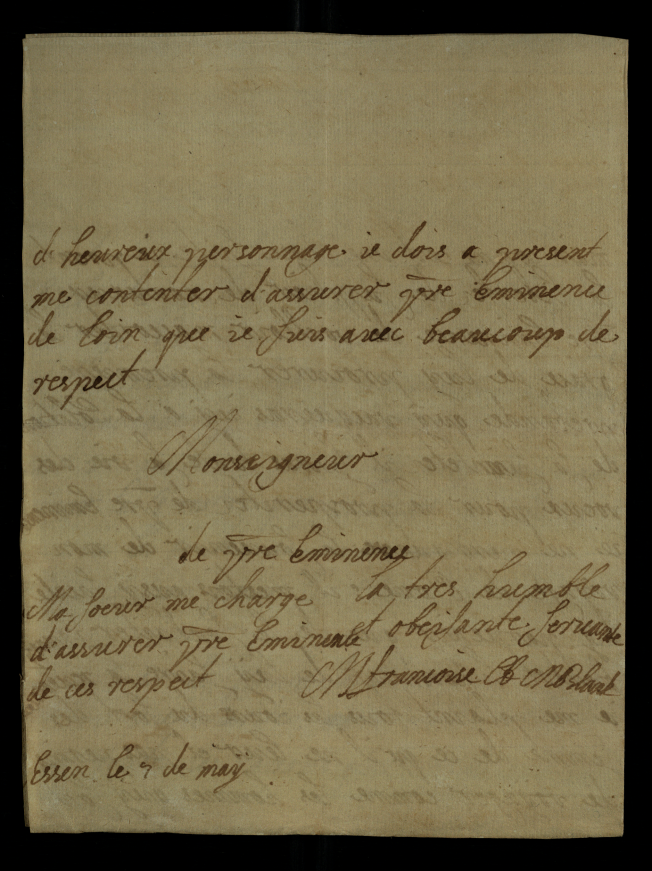 d heureux personnage ie dois a present
me contenter d'assurer vre eminence
de loin que ie suis avec beaucoup de
respect
Monseigneur
de vre eminence
la tres humble
et obeisante servante
Mfrancoise
Ma soeur me charge
d'assurer vre Eminence
de ces respect
Essen le 7 de may